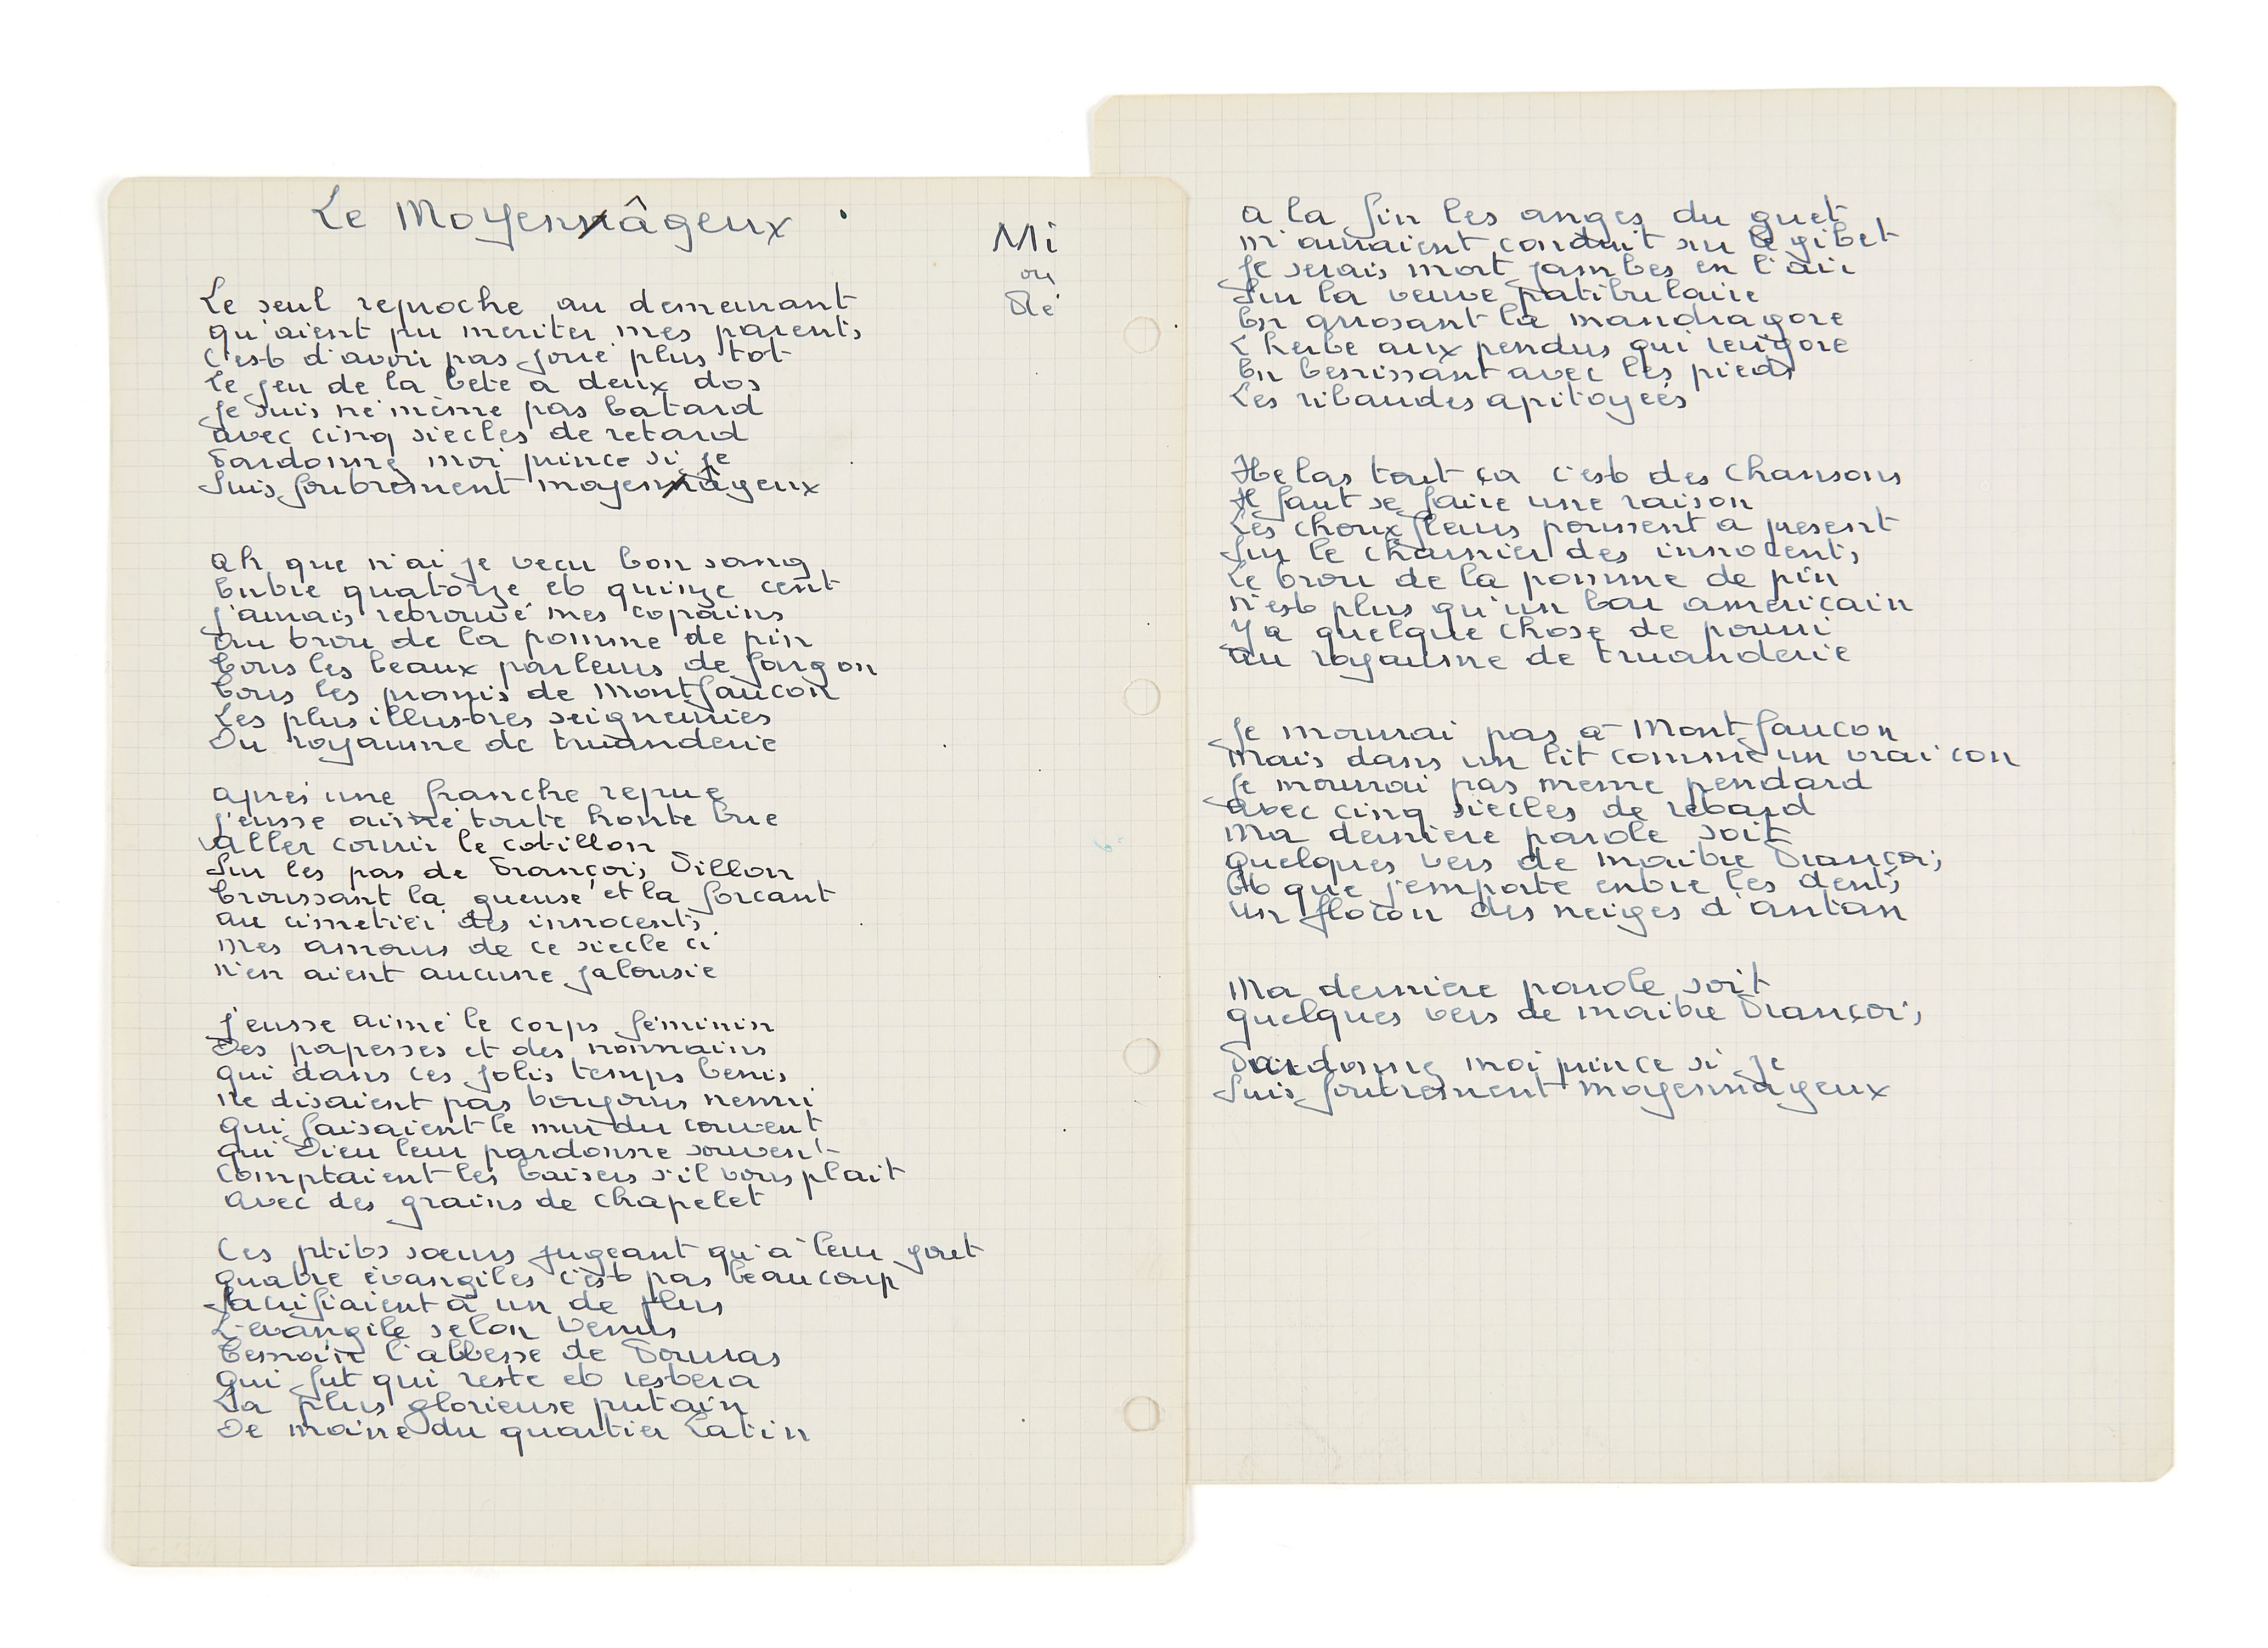 Le Moyennâgeux
Mi
ou
Ré
Le seul reproche au demeurant
qu'aient pu meriter mes parents
c'est d'avoir pas joué plus tot
le jeu de la bete a deux dos
Je suis né même pas batard
avec cinq siecles de retard
Pardonne moi prince si je
Suis foutrement moyennâgeux
Ah que n'ai je vecu bon sang
Entre quatorze et quinze cent
J'aurais retrouvé mes copains
Au trou de la pomme de pin
Tous les beaux parleurs de jargon
Tous les promis de Montfaucon
Les plus illustres seigneuries
Du royaume de truanderie
Apres une franche repue
J'eusse aimé toute honte bue
Aller courir le cotillon
Sur les pas de François Villon
Troussant la gueuse et la forcant
au cimetier des innocents
Mes amours de ce siecle ci
n'en aient aucune jalousie
J'eusse aimé le corps feminin
Des papesses et des nonnains
qui dans ces jolis temps benis
Ne disaient pas toujours nenni
qui faisaient le mur du couvent
qui Dieu leur pardonne souvent
Comptaient les baisers s'il vous plait
Avec des grains de chapelet
Ces ptits sœurs jugeant qu'à leur gout
quatre évangiles c'est pas beaucoup
Sacrifiaient à un de plus
L'evangile selon Venus
Temoin l'abbesse de Pourras
qui fut qui reste et restera
La plus glorieuse putain
De moine du quartier Latin
A la fin les anges du guet
m'auraient conduit sur le gibet
Je serais mort jambes en l'air
Sur la veuve patibulaire
En arrosant la mandragore
L'herbe aux pendus qui revigore
En benissant avec les pieds
Les ribaudes apitoyées
Helas tout ça c'est des chansons
Il faut se faire une raison
Les choux fleurs poussent a present
Sur le charnier des innocents
Le trou de la pomme de pin
N'est plus qu'un bar americain
Y a quelque chose de pourri
Au royaume de truanderie
Je mourrai pas a Montfaucon
Mais dans un lit comme un vrai con
Je mourrai pas meme pendard
Avec cinq siecles de retard
Ma derniere parole soit
quelques vers de maitre François
Et que j'emporte entre les dents
Un flocon des neiges d'antan
Ma derniere parole soit
quelques vers de maitre François
Pardonne moi prince si je
Suis foutrement moyennageux